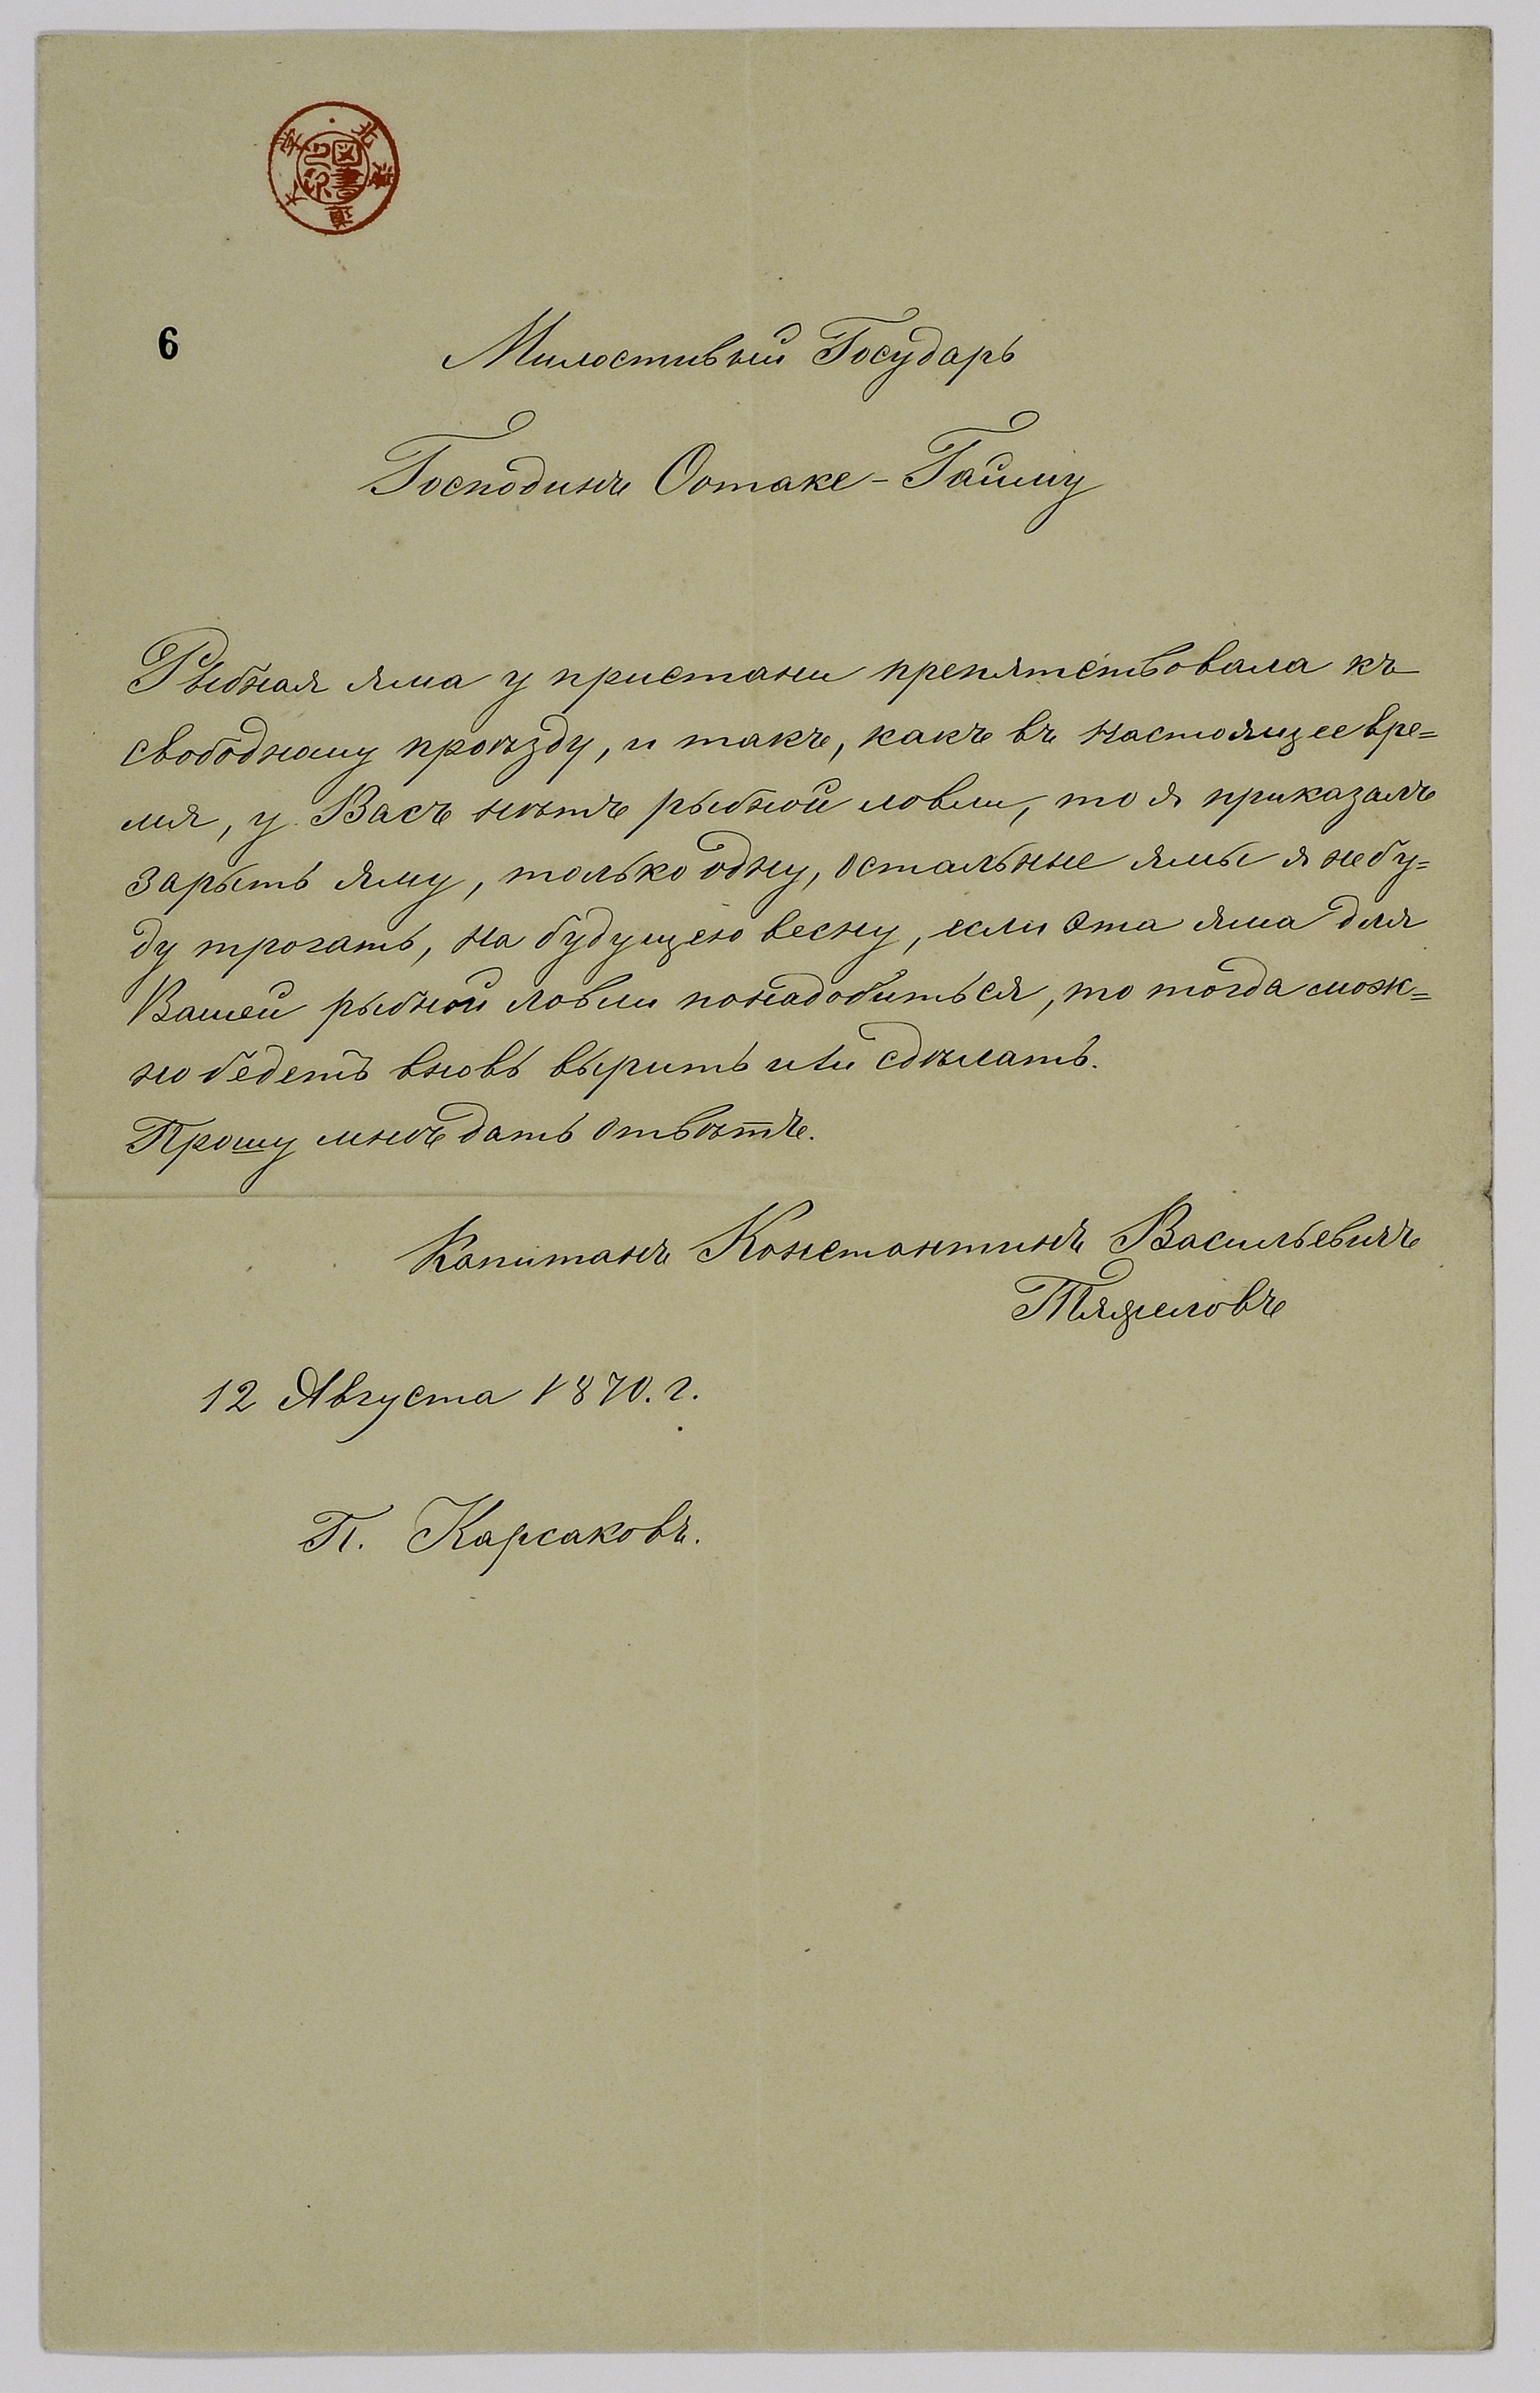 北海道大學
図書之印
6
Милостивый Государь
Господинъ Оотаке-Гаиму
Рыбная яма у пристани препятствовала къ
свободному проѣзду, и такъ, какъ въ настоящее вре=
мя, у Васъ нѣтъ рыбной ловли, то я приказалъ
зарыть яму, только одну, остальные ямы я не бу=
ду трогать, на будущею весну, если эта яма для
Вашей рыбной ловли понадобиться, то тогда мож=
но бедетъ вновь вырить или сдѣлать.
Прошу мнѣ дать отвѣтъ.
Капитанъ Константинъ Васильевичъ
Тяжеловъ
12 Августа 1870. г.
П. Карсаковъ.